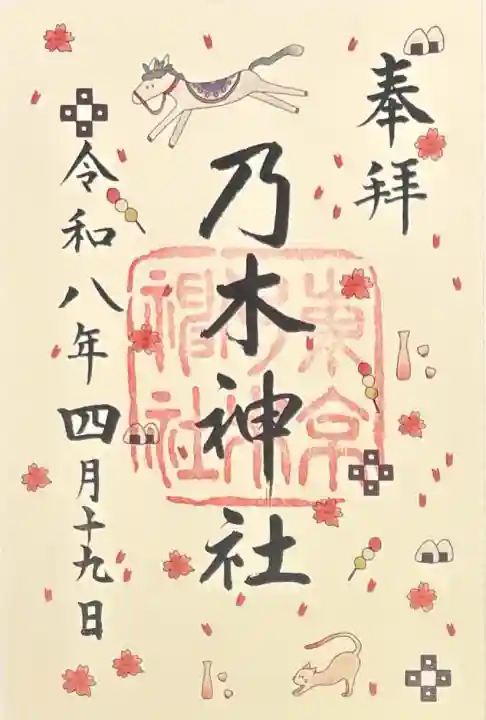 奉拝
乃木神社
東京乃木神社
令和八年四月十九日